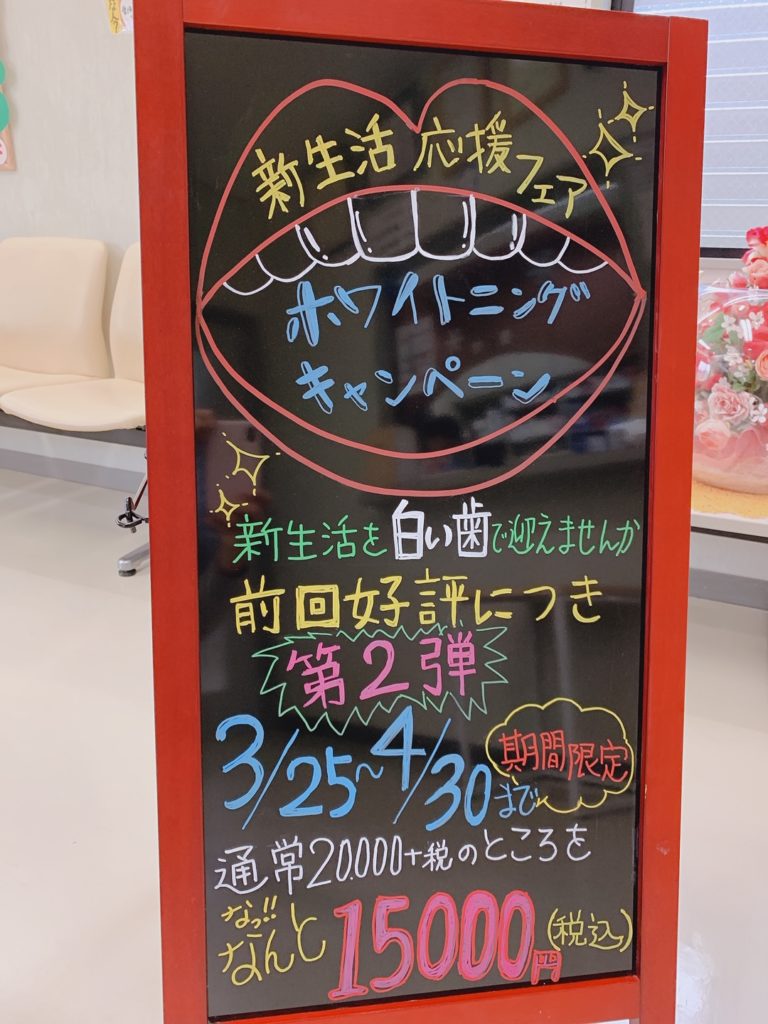 新生活応援フェア
ホワイトニング
キャンペーン
新生活を白い歯で迎えませんか
前回好評につき
第2弾
3/25~4/30まで
期間限定
通常20.000+税のところを
なっ!!
なんと15000円(税込)